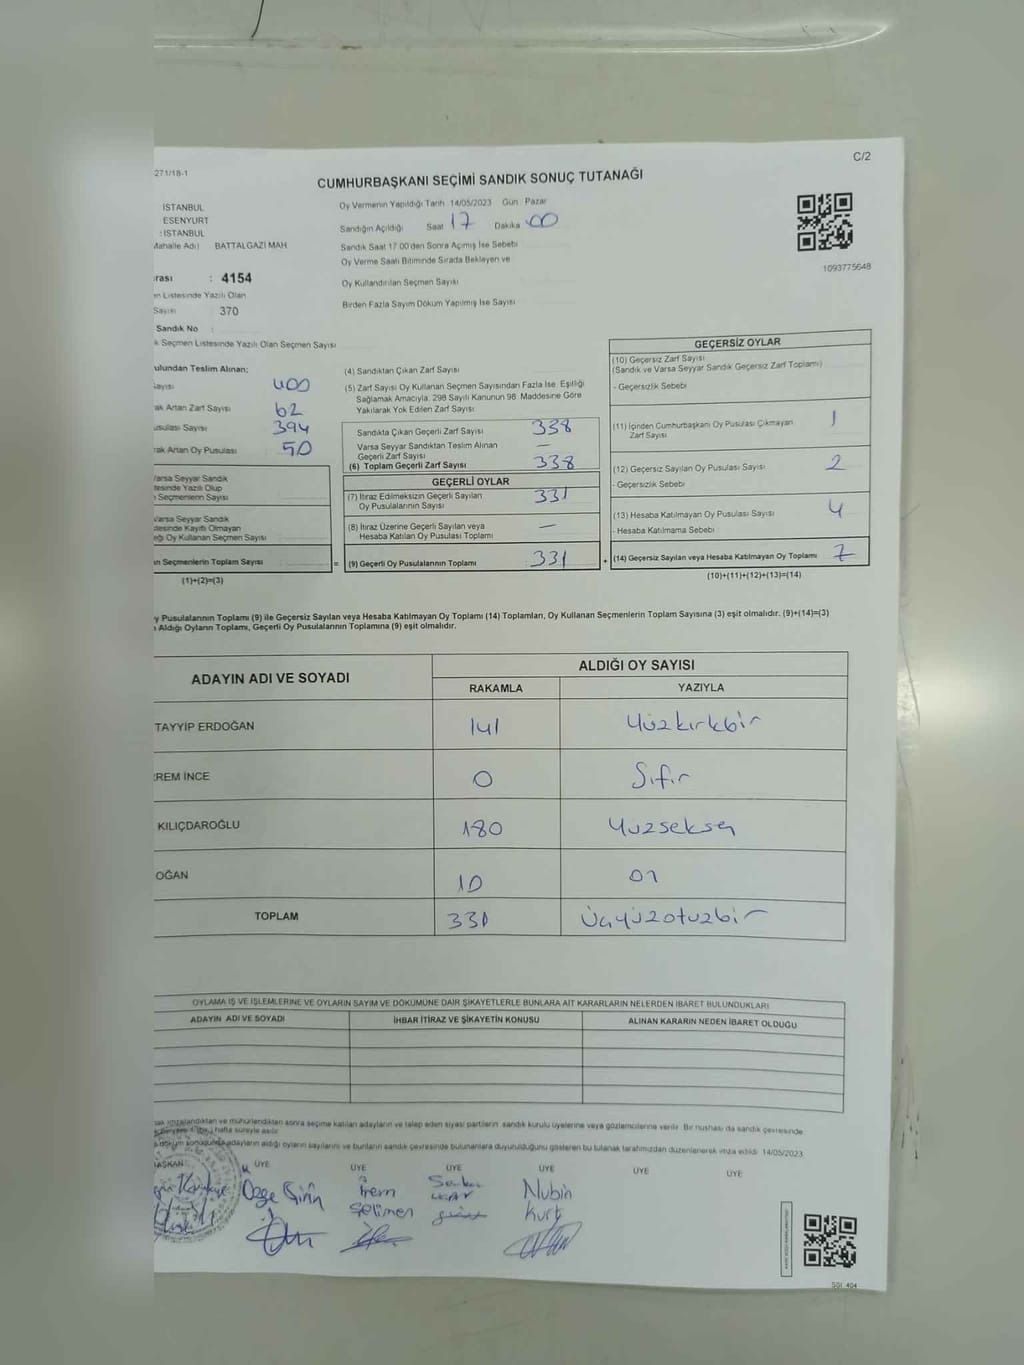 C/2
271/18-1
CUMHURBAŞKANI SEÇİMİ SANDIK SONUÇ TUTANAĞI
İSTANBUL
ESENYURT
: İSTANBUL
Mahalle Adı) BATTALGAZİ MAH
Oy Vermenin Yapıldığı Tarih 14/05/2023 Gün Pazar
Sandığın Açıldığı Saat 17 Dakika 00
Sandık Saat 17.00'den Sonra Açılmış İse Sebebi
Oy Verme Saati Bitiminde Sırada Bekleyen ve
Oy Kullandırılan Seçmen Sayısı
Birden Fazla Sayım Döküm Yapılmış İse Sayısı
1093775648
rası : 4154
n Listesinde Yazılı Olan
Sayısı : 370
Sandık No :
k Seçmen Listesinde Yazılı Olan Seçmen Sayısı
ulundan Teslim Alınan;
Sayısı 400
ak Artan Zarf Sayısı 62
usulası Sayısı 394
rak Artan Oy Pusulası 50
Varsa Seyyar Sandık
tesinde Yazılı Olup
Seçmenlerin Sayısı
Varsa Seyyar Sandık
tesinde Kayıtlı Olmayan
eği Oy Kullanan Seçmen Sayısı
n Seçmenlerin Toplam Sayısı =
(1)+(2)=(3)
(4) Sandıktan Çıkan Zarf Sayısı
(5) Zarf Sayısı Oy Kullanan Seçmen Sayısından Fazla İse, Eşitliği
Sağlamak Amacıyla, 298 Sayılı Kanunun 98. Maddesine Göre
Yakılarak Yok Edilen Zarf Sayısı
Sandıkta Çıkan Geçerli Zarf Sayısı 338
Varsa Seyyar Sandıktan Teslim Alınan
Geçerli Zarf Sayısı —
(6) Toplam Geçerli Zarf Sayısı 338
GEÇERLİ OYLAR
(7) İtiraz Edilmeksizin Geçerli Sayılan
Oy Pusulalarının Sayısı 331
(8) İtiraz Üzerine Geçerli Sayılan veya
Hesaba Katılan Oy Pusulası Toplamı —
(9) Geçerli Oy Pusulalarının Toplamı 331 +
GEÇERSİZ OYLAR
(10) Geçersiz Zarf Sayısı
(Sandık ve Varsa Seyyar Sandık Geçersiz Zarf Toplamı)
- Geçersizlik Sebebi
(11) İçinden Cumhurbaşkanı Oy Pusulası Çıkmayan
Zarf Sayısı 1
(12) Geçersiz Sayılan Oy Pusulası Sayısı 2
- Geçersizlik Sebebi
(13) Hesaba Katılmayan Oy Pusulası Sayısı 4
- Hesaba Katılmama Sebebi
(14) Geçersiz Sayılan veya Hesaba Katılmayan Oy Toplamı 7
(10)+(11)+(12)+(13)=(14)
y Pusulalarının Toplamı (9) ile Geçersiz Sayılan veya Hesaba Katılmayan Oy Toplamı (14) Toplamları, Oy Kullanan Seçmenlerin Toplam Sayısına (3) eşit olmalıdır. (9)+(14)=(3)
n Aldığı Oyların Toplamı, Geçerli Oy Pusulalarının Toplamına (9) eşit olmalıdır.
ADAYIN ADI VE SOYADI
ALDIĞI OY SAYISI
RAKAMLA YAZIYLA
TAYYİP ERDOĞAN 141 Yüzkırkbir
REM İNCE 0 Sıfır
KILIÇDAROĞLU 180 Yüzseksen
OĞAN 10 on
TOPLAM 331 Üçyüzotuzbir
OYLAMA İŞ VE İŞLEMLERİNE VE OYLARIN SAYIM VE DÖKÜMÜNE DAİR ŞİKAYETLERLE BUNLARA AİT KARARLARIN NELERDEN İBARET BULUNDUKLARI
ADAYIN ADI VE SOYADI İHBAR İTİRAZ VE ŞİKAYETİN KONUSU ALINAN KARARIN NEDEN İBARET OLDUĞU
imzalandıktan ve mühürlendikten sonra seçime katılan adayların ve talep eden siyasi partilerin sandık kurulu üyelerine veya gözlemcilerine verilir. Bir nüshası da sandık çevresinde
hafta süreyle asılır
döküm sonuçunda adayların aldığı oyların sayılarını ve bunların sandık çevresinde bulunanlara duyurulduğunu gösteren bu tutanak tarafımızdan düzenlenerek imza edildi 14/05/2023
BAŞKAN ÜYE ÜYE ÜYE ÜYE ÜYE ÜYE
Özge Şirin
İrem
Selimen
Nubin
Kurt